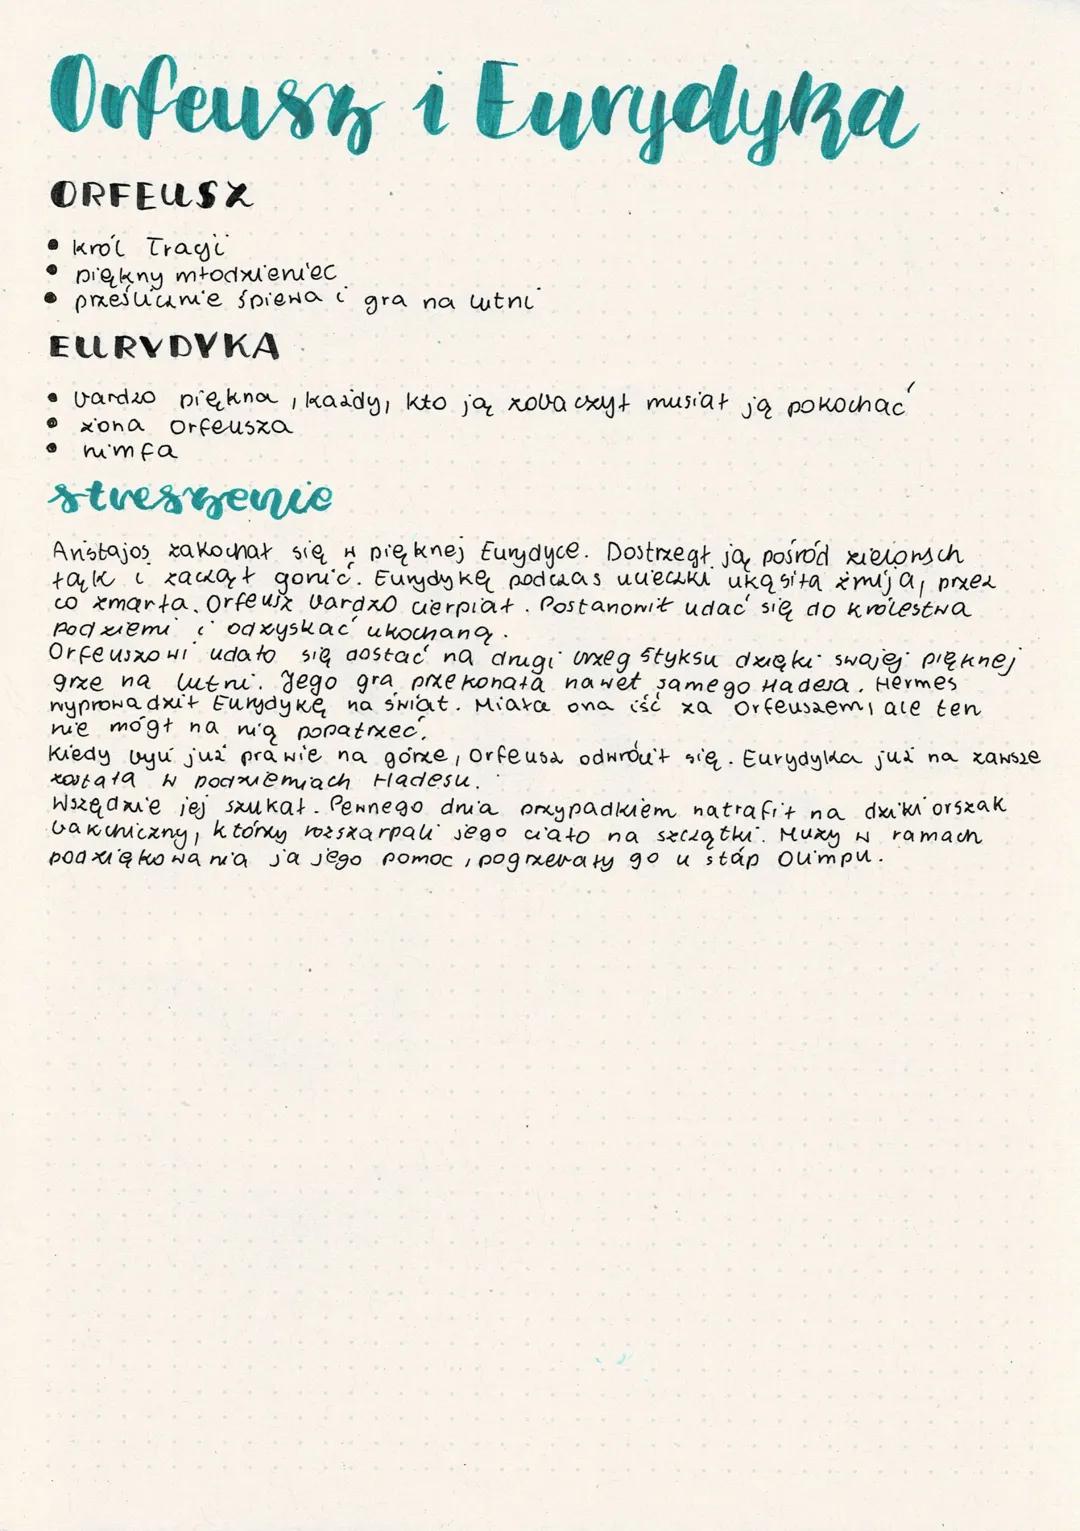 Orfeusz i Eurydyka
ORFEUSZ
• król Tracji
• piękny młodzieniec
• prześlicznie śpiewa i gra na lutni
EURYDYKA
• bardzo piękna, każdy, kto ją zobaczył musiał ją pokochać
• żona Orfeusza
• nimfa
streszenie
Aristajos zakochał się w pięknej Eurydyce. Dostrzegł ją pośród zielonsch
łąk i zaczął gonić. Eurydykę podczas ucieczki ukąsiła żmija, przez
co zmarła. Orfeusz bardzo cierpiał. Postanowił udać się do królestwa
Podziemi i odzyskać ukochaną.
Orfeuszowi udało się dostać na drugi brzeg Styksu dzięki swojej pięknej
grze na lutni. Jego gra przekonała nawet samego Hadesa. Hermes
wyprowadził Eurydykę na świat. Miała ona iść za Orfeuszem, ale ten
nie mógł na nią popatrzeć.
Kiedy byli już prawie na górze, Orfeusz odwrócił się. Eurydyka już na zawsze
została w podziemiach Hadesu.
Wszędzie jej szukał. Pewnego dnia przypadkiem natrafił na dziki orszak
bakchiczny, którzy rozszarpali jego ciało na szczątki. Muzy w ramach
podziękowania za jego pomoc, pogrzebały go u stóp Olimpu.